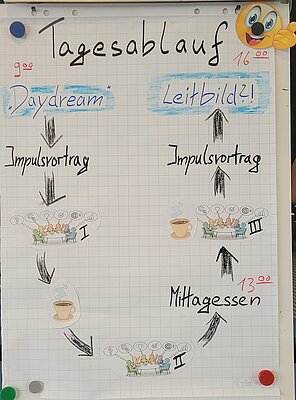 Tagesablauf
9 00
16 00
"Daydream"
Leitbild?!
Impulsvortrag
Impulsvortrag
I
III
13 00
Mittagessen
II